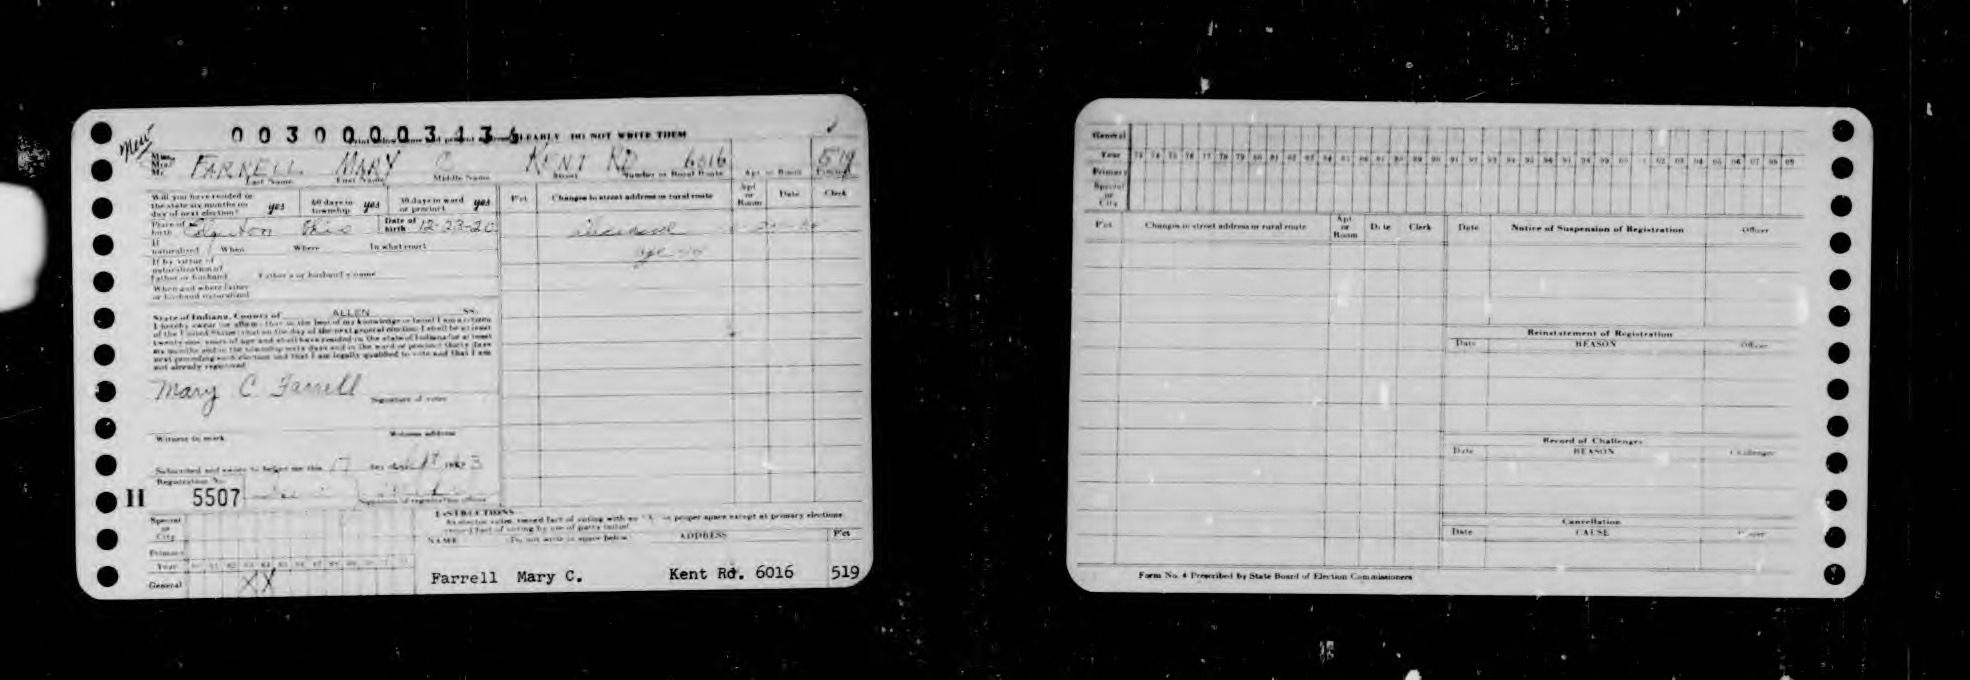 New
0030000313
CLEARLY DO NOT WRITE THEM
Miss
Mrs.
Mr. FARRELL MARY C KENT RD 6016 519
Last Name First Name Middle Name Street Number or Rural Route Apt or Room Precinct
Will you have resided in the state six months on day of next election? yes 60 days in township yes 30 days in ward or precinct yes
Place of birth Edgerton Ohio Date of birth 12-23-20
If naturalized When Where In what court
If by virtue of naturalization of Father or husband Father's or husband's name
When and where father or husband naturalized
P'ct Changes in street address or rural route Apt or Room Date Clerk
deceased
State of Indiana, County of ALLEN SS.
I hereby swear (or affirm) that to the best of my knowledge or belief I am a citizen
of the United States; that on the day of the next general election I shall be at least
twenty-one years of age and shall have resided in the state of Indiana for at least
six months and in the township sixty days and in the ward or precinct thirty days
next preceding such election and that I am legally qualified to vote and that I am
not already registered.
Mary C Farrell
Signature of voter
Witness to mark Witness address
Subscribed and sworn to before me this 17 day of
Registration No.
H 5507
Signature of registration officer
INSTRUCTIONS
proper space except at primary elections
record fact of voting by use of party initial
Special or City
Primary
Year
General XX
NAME Do not write in space below ADDRESS P'ct
Farrell Mary C. Kent Rd. 6016 519
General
Year 73 74 75 76 77 78 79 80 81 82 83 84 85 86 87 88 89 90 91 92 93 94 95 96 97 98 99 00 01 02 03 04 05 06 07 08 09
Primary
Special or City
P'ct Changes in street address or rural route Apt or Room Date Clerk
Date Notice of Suspension of Registration Officer
Reinstatement of Registration
Date REASON Officer
Record of Challenges
Date REASON Challenger
Cancellation
Date CAUSE
Form No. 4 Prescribed by State Board of Election Commissioners